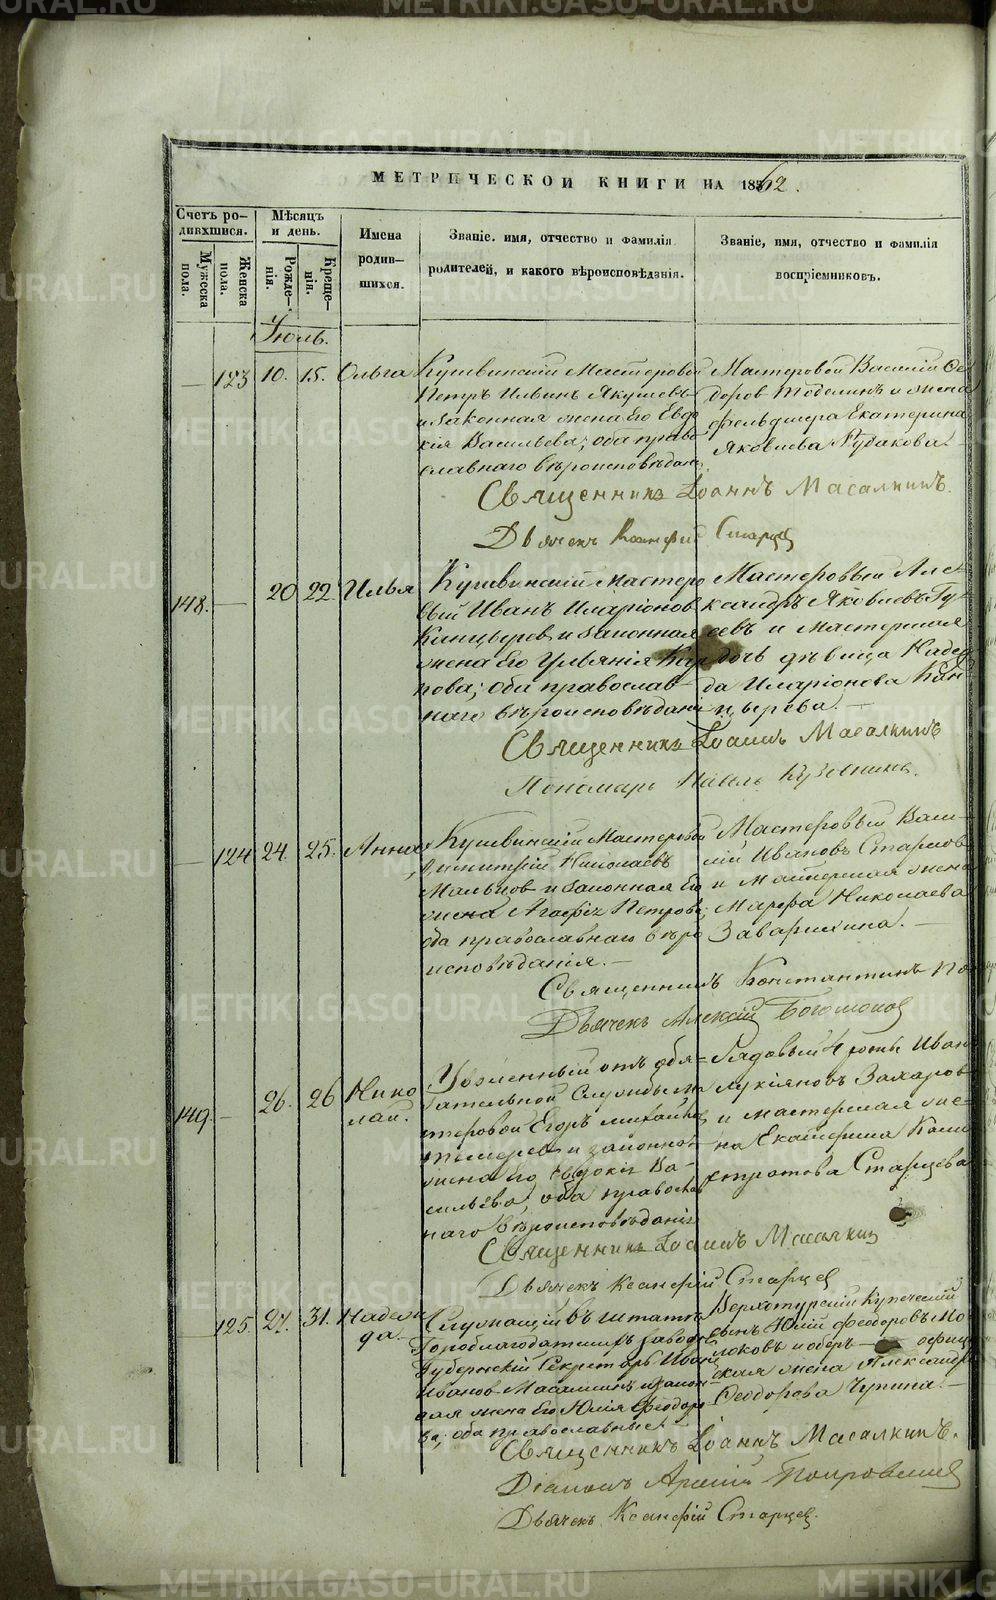 METRIKI.GASO-URAL.RU
МЕТРИЧЕСКОЙ КНИГИ НА 1862.
Счетъ родившихся.
Мѣсяцъ и день.
Имена родившихся.
Званіе, имя, отчество и фамилія родителей, и какого вѣроисповѣданія.
Званіе, имя, отчество и фамилія воспріемниковъ.
Мужеска пола.
Женска пола.
Рожденія.
Крещенія.
Іюль.
— 123 10. 15. Ольга
Кушвинскій Мастеровой
Петръ Ильинъ Якушевъ
и законная жена его Евдо
кія Васильева; оба право
славнаго вѣроисповѣдан.
Мастеровой Василій Ѳе
доровъ и жена
фельдшера Екатерина
Яковлева Рудакова. —
Священникъ Іоаннъ Масалкинъ.
Дьячекъ Ксенофій Старцев
148. — 20 22 Илья
Кушвинскій Мастеро
вый Иванъ Иларіонов
Канцыревъ и законная
жена его Ульянія Кар
пова; оба православ
наго вѣроисповѣдані
Мастеровый Алек
сандръ Яковлевъ Гу
севъ и Мастерская
дочь дѣвица Надеж
да Иларіонова Кан
цырева. —
Священникъ Іоаннъ Масалкинъ
Пономарь Павелъ
— 124 24. 25. Анна
Кушвинскій Мастеровой
Димитрій Николаевъ
Мальцов и законная его
жена Агафія Петрова;
оба православнаго вѣро
исповѣданія. —
Мастеровый Васи—
лій Ивановъ Старцов
и Мастерская жена
Марфа Николаева
Заварихина. —
Священникъ Константинъ Поп
Дьячекъ Алексій Богомолов
149. — 26. 26 Нико
лай.
Уволенный отъ обя—
зательной Службы ма
стеровой Егоръ Михайлов
и законная
жена его Евдокія Ва—
сильева; оба православ
наго вѣроисповѣданія
Рядовый 4 роты Иван
Лукіяновъ Захаров
и мастерская же—
на Екатерина Кали
стратова Старцева
Священникъ Іоаннъ Масалкин
Дьячекъ Ксенофій Старцев
125. 27. 31. Надеж
да.
Служащій въ штатѣ
Гороблагодатскихъ заводов
Губернскій Секретарь Иван
Иванов Масалкинъ и закон—
ная жена его Юлія Феодоро
ва; оба православные.
Верхотурскій Купеческій
сынъ Юлій Феодоровъ Мо
локовъ и оберъ— офицер
ская жена Александра
Феодорова Чупина. —
Священникъ Іоаннъ Масалкинъ.
Діаконъ Арсеній Покровскій
Дьячекъ Ксенофій Старцев.